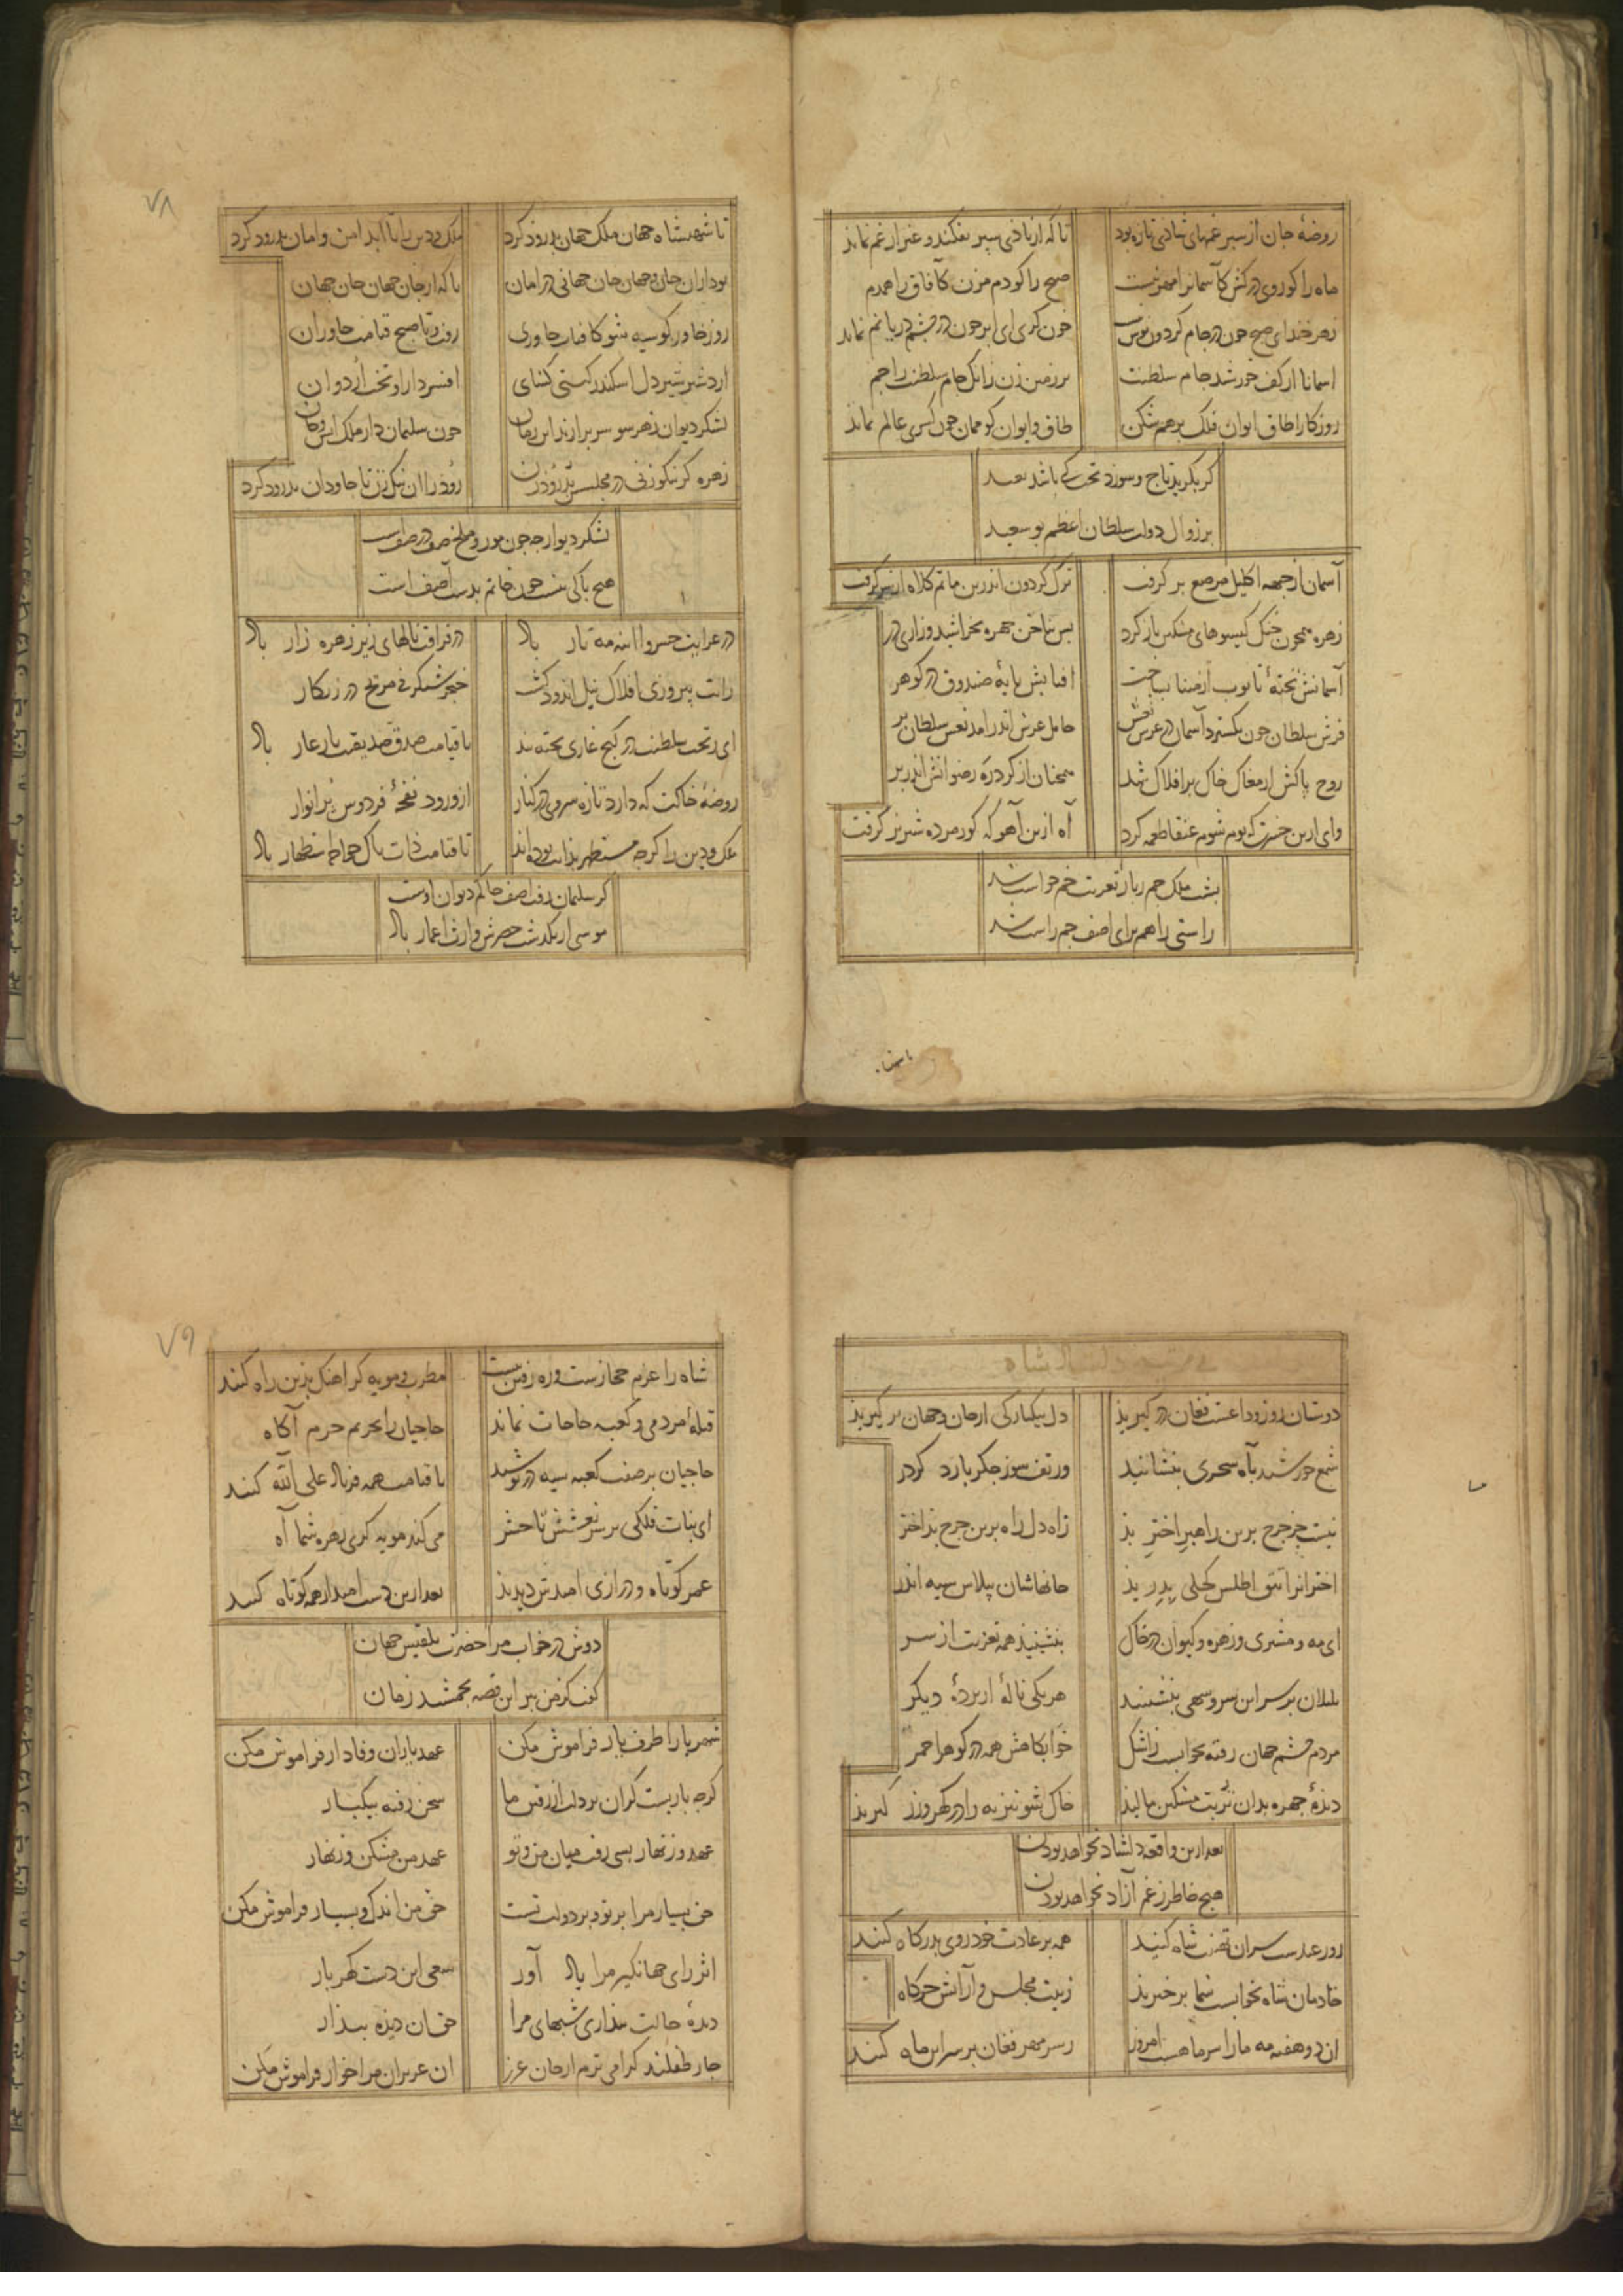 روضهٔ جان از سپر غمهای شادی تازه بود تا که از باد نی سپر بفکند و عنبر از غم نماند
ماه را کو روی درکش کآسمانرا مهر نیست صبح را کو دم مزن کآفاق را همدم
زهر خند ای صبح چون در جام کردون نوش خون کری ای ابر چون در چشم دریا نم نماند
اسمانا از کف خورشید جام سلطنت بر زمین زن زانک جام سلطنت را جم
روزکارا طاق ایوان فلک بر هم شکن طاق و ایوان کو ممان چون کسری عالم نماند
کر بکرید تاج و سوزد تخت کی باشد بعید
بر زوال دولت سلطان اعظم بو سعید
آسمان از جبهه اکلیل مرصع بر کرفت ترک کردون اندرین ماتم کلاه از سر کرفت
زهره همچون چنک کیسوهای مشکین باز کرد پس بناخن چهره بخراشید و زاری در
آسمانش تختهٔ تابوت از مینا بساخت افتابش پایهٔ صندوق در کوهر
فرش سلطان چون بکسترد آسمان در عرس نعش حامل عرش اندر امد نعش سلطان بر
روح پاکش از مغاک خاک بر افلاک شد همچنان از کرد ره رضوانش اندر بر
وای ازین حسرت که بوم شوم عنقا طعمه کرد آه ازین آهو که کور مرده شیر نر کرفت
پشت ملک جم ز بار تعزیت خم خواست شد
راستی را هم برای اصف جم راست شد
٧٨
تا شهنشاه جهان ملک جهان بدرود کرد ملک و دین را تا ابد امن و امان بدرود کرد
بود ایران جان و جهان جان جهانی در امان پاکه از جان جهان جان جهان
روز خاور کو سیه شو کافتاب خاوری رفت و تا صبح قیامت خاوران
اردشیر شیر دل اسکندر کیتی کشای افسر دارا و تخت اردوان
لشکر دیوان ز هر سو سر برارند این زمان چون سلیمان دار ملک انس و جان
زهره کر نیکو زنی در مجلسش بد رود زن رود را ان نیک زن تا جاودان بدرود کرد
لشکر دیو ار چه چون مور و ملخ صف در صف است
هیچ باکی نیست چون خاتم بدست آصف است
در عزایت خسروا اینه مه تار باد در فراقت نالهای زیر زهره زار باد
رایت پیروزی افلاک نیل اندود کشت خنجر شنکرفی مریخ در زنکار
ای ز تخت سلطنت در کنج غاری تخته بند تا قیامت صدق صدیقت یار غار باد
روضهٔ خاکت که دارد تازه سروی در کنار از ورود نفحهٔ فردوس پر انوار
ملک و دین را کر چه مستظهر بذاتت بوده اند تا قیامت ذات پاک خواجه استظهار باد
کر سلیمان رفت اصف حاکم دیوان اوست
موسی ار بکذشت خضرش وارث اعمار باد
في مرثية دلشاد شاه
دوستان روز وداعست فغان در کیرید دل بیکبارکی از جان و جهان بر کیرید
شمع خورشید بآه سحری بنشانید ور تف سوز جکر بارد کردر
نیست جز چرخ برین راهبر اختر بد زاه دل راه برین چرخ بد اختر
اخترانرا تتق اطلس کحلی بدرید خانهاشان پلاس سیه اندر
ای مه و مشتری و زهره و کیوان در خاک بنشینید همه تعزیت از سر
بلبلان بر سر این سرو سهی بنشینید هر یکی نالهٔ از پردهٔ دیکر
مردم چشم جهان رفته بخوابست ز اشک خوابکاهش همه در کوهر احمر
دیدهٔ چهره بدان تربت مشکین مالید خاک شو نیز به زا در کهر و زر کیرید
بعد ازین واقعه دلشاد نخواهد بودن
هیچ خاطر ز غم آزاد نخواهد بودن
روز عیدست سران تهنیت شاه کنید همه بر عادت خود روی بدرکاه کنند
خادمان شاه بخوابست شما برخیزید زینت مجلس و آرایش خرکاه
ان دو هفته مه ما را سر ماهست امروز ز سر مهر فغان بر سر این ماه کنند
٧٩
شاه را عزم حجازست و ره رفتن نیست مطرب و مویه کر اهنک بدین راه کنند
قبلهٔ مردمی و کعبه حاجات نماند حاجیان را بحریم حرم آکاه
حاجیان بر صفت کعبه سیه در پوشید تا قیامت همه فریاد علی الله کنند
ای بنات فلکی بر سر نعشش تا حشر می کند مویه کری زهره شما آه
عمر کوتاه و درازی امیدش دیدید بعد ازین دست امید از همه کوتاه کنید
دوش در خواب مرا حضرت بلقیس جهان
کفت کز من ببر این قصه بجمشید زمان
شهریارا طرف یار فراموش مکن عهد یاران وفادار فراموش مکن
کرچه باریست کران بر دلت از رفتن ما سخن رفته بیکبار
عهد و زنهار بسی رفت میان من و تو عهد من مشکن و زنهار
حق بسیار مرا بر تو و بر دولت تست حق من اندک و بسیار فراموش مکن
اثر رای جهانکیر مرا یاد آور سعی این دست کهربار
دیدهٔ حالت بیداری شبهای مرا حق ان دیده بیدار
چار طفلند کرامی ترم از جان عزیز ان عزیزان مرا خوار فراموش مکن